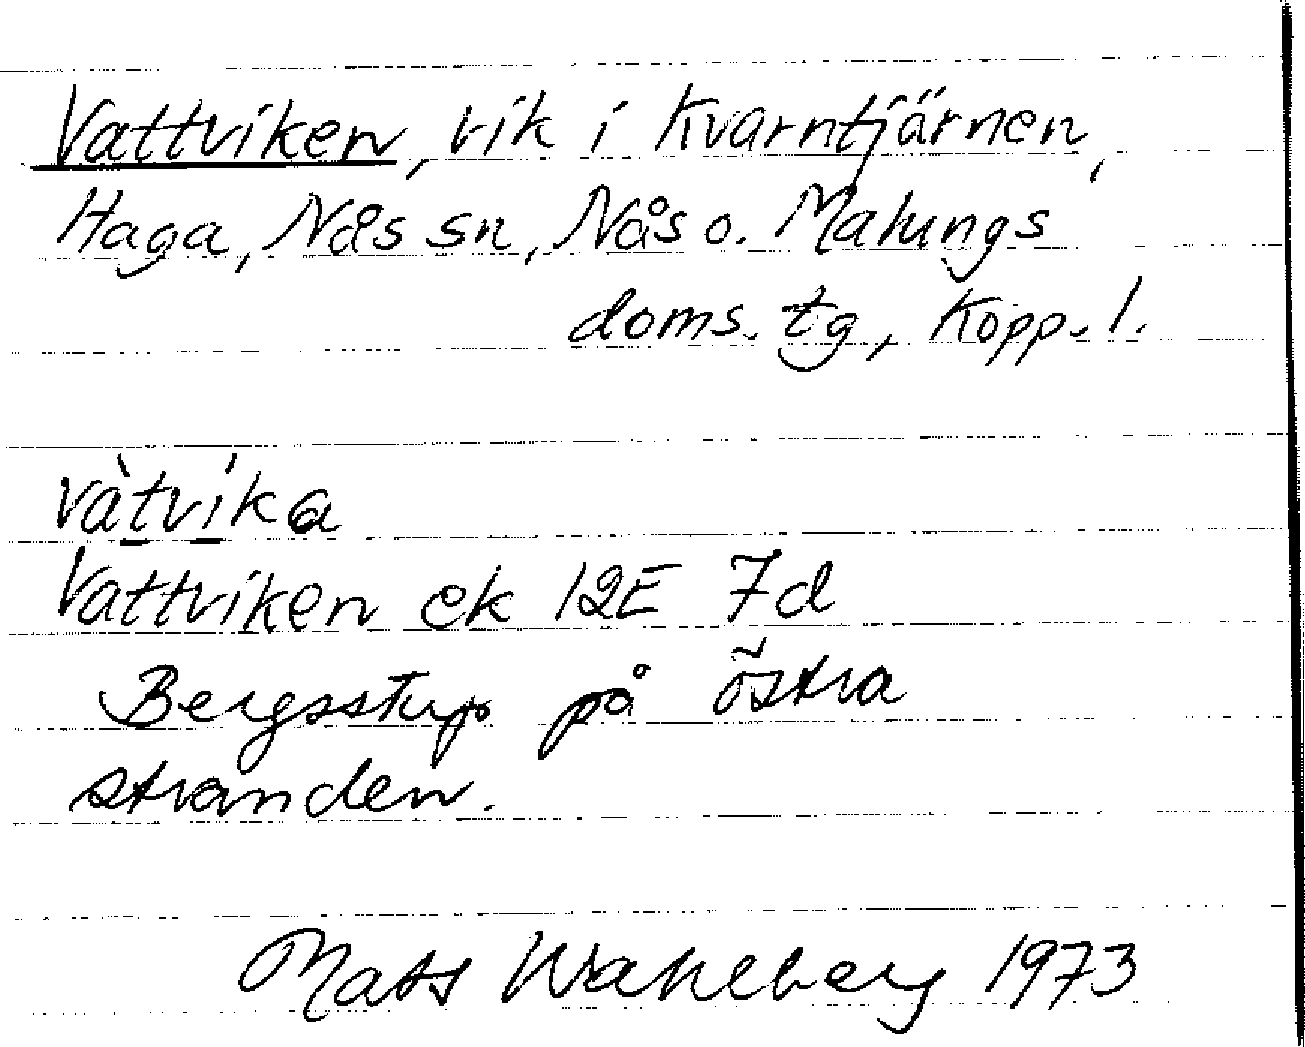 Vattviken, vik i Kvarntjärnen,
Haga, Nås sn, Nås o. Malungs
doms. tg, Kopp. l.
vàtvíka
Vattviken ek 12E 7d
Bergsstup på östra
stranden.
Mats Wahlberg 1973